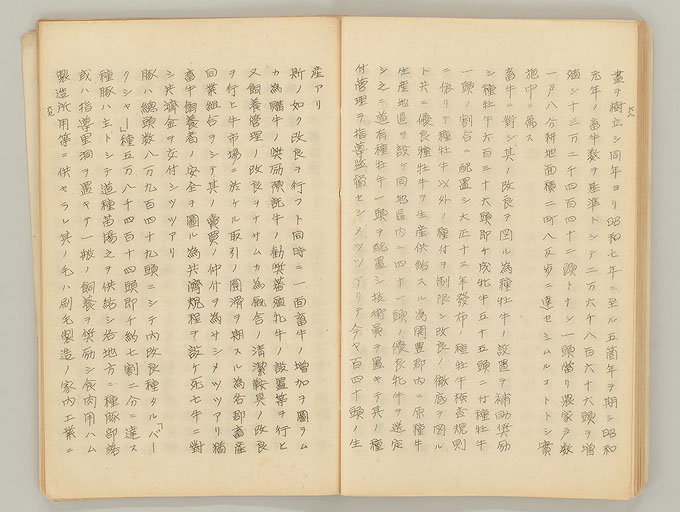 六八
畫ヲ樹立シ同年ヨリ昭和七年ニ至ル五箇年ヲ期シ昭和
元年ノ畜牛数ヲ基準トシテ二万六千八百六十六頭ヲ増
殖シ十三万二千四百四十二頭トナシ一頭當リ農家戸数
一戸八分耕地面積二町八反歩ニ達セシムルコトトシ實
施中ニ屬ス
畜牛ニ對シ其ノ改良ヲ図ル為種牡牛ノ設置ヲ補助奨励
シ種牡牛六百三十六頭即チ成牝牛五十五頭ニ付種牡牛
一頭ノ割合ニ配置シ大正十三年發布ノ種牡牛検査規則
ニ依リテ種牡牛以外ノ種付ヲ制限シ改良ノ徹底ヲ図ル
ト共ニ優良種牡牛ヲ生産供給スル為開豊郡内ニ原種牛
生産地區ヲ設ケ同地區内ニ四十一頭ノ優良牝牛ヲ選定
シ之ニ道有種牡牛一頭ヲ配置シ技術員ヲ置キテ其ノ種
付管理ヲ指導監督セシメツツアリテ今ヤ百四十頭ノ生
産アリ
斯ノ如ク改良ヲ行フト同時ニ一面畜牛ノ増加ヲ圖ラム
カ為購牛ノ奨励預託牛ノ勧奨蕃殖牝牛ノ設置等ヲ行ヒ
又飼養管理ノ改良ヲナサムカ為畜舎ノ清潔鞍具ノ改良
ヲ行ヒ牛市場ニ於ケル取引ノ圓滑ヲ期スル為各郡畜産
同業組合ヲシテ其ノ賣買ノ仲介ヲ為サシメツツアリ猶
畜牛飼養者ノ安全ヲ圖ル為共済規程ヲ設ケ死亡牛ニ對
シ共済金ヲ交付シツツアリ
豚ハ總頭数八万九百四十九頭ニシテ内改良種タル「バー
クシャー」種五万八千四百十四頭即チ約七割二分ニ達ス
種豚ハ主トシテ道種苗場之ヲ供給シ各地方ニ種豚部落
或ハ指導里洞ヲ置キテ一般ノ飼養ヲ奨励シ食肉用ハム
製造所用等ニ供セラレ其ノ毛ハ刷毛製造ノ家内工業ニ
六九